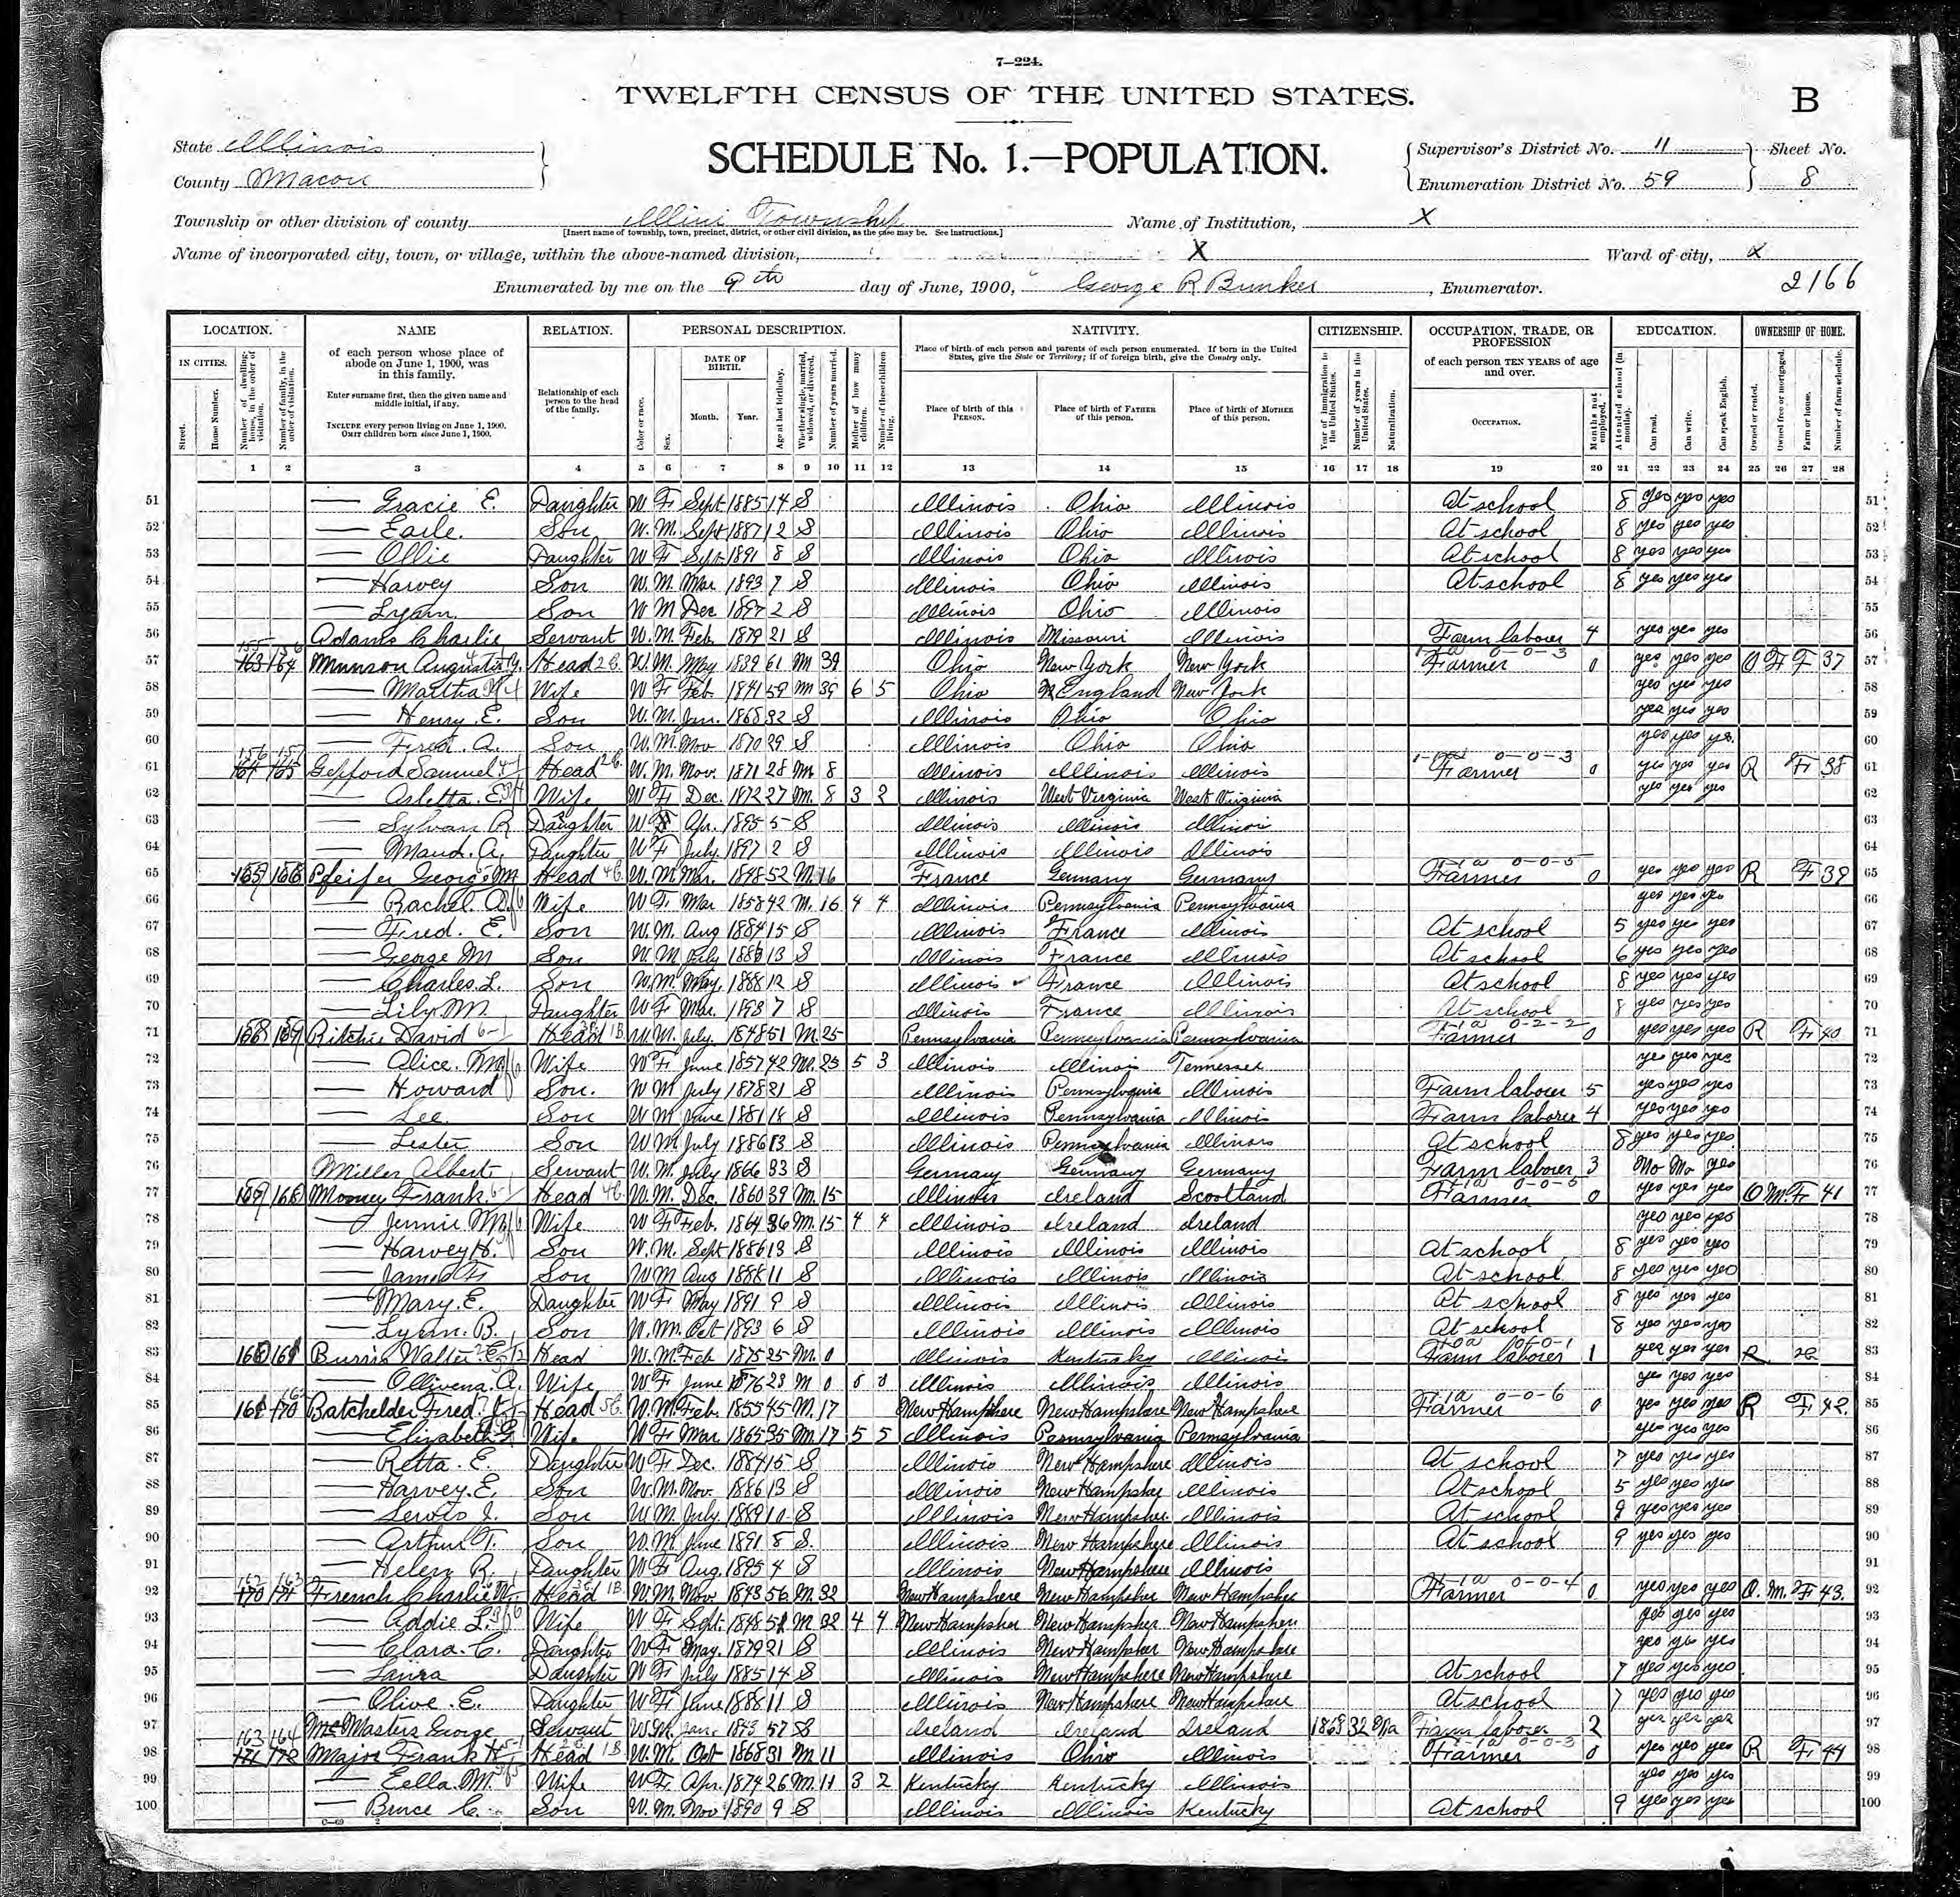 7—224.
TWELFTH CENSUS OF THE UNITED STATES.
B
State Illinois
County Macon
SCHEDULE No. 1.—POPULATION.
Supervisor's District No. 11
Enumeration District No. 59
Sheet No.
8
Township or other division of county Illini Township
[Insert name of township, town, precinct, district, or other civil division, as the case may be. See instructions.]
Name of Institution, X
Name of incorporated city, town, or village, within the above-named division, X
Ward of city, X
Enumerated by me on the 9th day of June, 1900, George R Bunker, Enumerator.
2166
LOCATION. NAME RELATION. PERSONAL DESCRIPTION. NATIVITY. CITIZENSHIP. OCCUPATION, TRADE, OR PROFESSION EDUCATION. OWNERSHIP OF HOME.
IN CITIES.
Street.
House Number.
Number of dwelling-house, in the order of visitation.
Number of family, in the order of visitation.
of each person whose place of abode on June 1, 1900, was in this family.
Enter surname first, then the given name and middle initial, if any.
INCLUDE every person living on June 1, 1900.
OMIT children born since June 1, 1900.
Relationship of each person to the head of the family.
Color or race.
Sex.
DATE OF BIRTH.
Month. Year.
Age at last birthday.
Whether single, married, widowed, or divorced.
Number of years married.
Mother of how many children.
Number of these children living.
Place of birth of each person and parents of each person enumerated. If born in the United States, give the State or Territory; if of foreign birth, give the Country only.
Place of birth of this PERSON.
Place of birth of FATHER of this person.
Place of birth of MOTHER of this person.
Year of immigration to the United States.
Number of years in the United States.
Naturalization.
of each person TEN YEARS of age and over.
OCCUPATION.
Months not employed.
Attended school (in months).
Can read.
Can write.
Can speak English.
Owned or rented.
Owned free or mortgaged.
Farm or house.
Number of farm schedule.
1 2 3 4 5 6 7 8 9 10 11 12 13 14 15 16 17 18 19 20 21 22 23 24 25 26 27 28
51 — Gracie E. Daughter W F Sept 1885 14 S Illinois Ohio Illinois At school 8 yes yes yes 51
52 — Earle. Son W. M. Sept 1887 12 S Illinois Ohio Illinois At school 8 yes yes yes 52
53 — Ollie Daughter W F Sept 1891 8 S Illinois Ohio Illinois At school 8 yes yes yes 53
54 — Harvey Son W. M. Mar 1893 7 S Illinois Ohio Illinois At school 8 yes yes yes 54
55 — Lynn Son W M Dec 1897 2 S Illinois Ohio Illinois 55
56 Adams Charlie Servant W. M. Feb. 1879 21 S Illinois Missouri Illinois Farm laborer 4 yes yes yes 56
57 163 164 Munson Head W. M. May 1839 61 M 39 Ohio New York New York Farmer 0 yes yes yes O F F 37 57
58 — Martha Wife W F Feb. 1841 59 M 39 6 5 Ohio England New York yes yes yes 58
59 — Henry E. Son W. M. Jan. 1868 32 S Illinois Ohio Ohio yes yes yes 59
60 — Fred. A. Son W. M. Nov 1870 29 S Illinois Ohio Ohio yes yes yes 60
61 164 165 Gepford Samuel Head W. M. Nov. 1871 28 M 8 Illinois Illinois Illinois Farmer 0 yes yes yes R F 38 61
62 — Arletta. E. Wife W F Dec. 1872 27 M. 8 3 2 Illinois West Virginia West Virginia yes yes yes 62
63 — Sylvan R Daughter W F Apr. 1895 5 S Illinois Illinois Illinois 63
64 — Maud. A. Daughter W F July 1897 2 S Illinois Illinois Illinois 64
65 Pfeifer George M Head W. M. Mar. 1848 52 M 16 France Germany Germany Farmer 0 yes yes yes R F 39 65
66 — Rachel. A. Wife W F Mar 1858 42 M. 16 4 4 Illinois Pennsylvania Pennsylvania yes yes yes 66
67 — Fred. E. Son W. M. Aug 1884 15 S Illinois France Illinois At school 5 yes yes yes 67
68 — George M Son W. M July 1886 13 S Illinois France Illinois At school 6 yes yes yes 68
69 — Charles. L. Son W. M. May. 1888 12 S Illinois France Illinois At school 8 yes yes yes 69
70 — Lily. M. Daughter W F Mar. 1893 7 S Illinois France Illinois At school 8 yes yes yes 70
71 Ritchie David Head W. M. July. 1848 51 M. 25 Pennsylvania Pennsylvania Pennsylvania Farmer 0 yes yes yes R F 40 71
72 — Alice. M. Wife W F June 1857 42 M. 25 5 3 Illinois Illinois Tennessee yes yes yes 72
73 — Howard Son. W M July 1878 21 S Illinois Pennsylvania Illinois Farm laborer 5 yes yes yes 73
74 — Lee. Son W M June 1881 18 S Illinois Pennsylvania Illinois Farm laborer 4 yes yes yes 74
75 — Lester Son W M July 1886 13 S Illinois Pennsylvania Illinois At school 8 yes yes yes 75
76 Miller Albert Servant W. M. July 1866 33 S Germany Germany Germany Farm laborer 3 No No yes 76
77 Mooney Frank Head W. M. Dec. 1860 39 M. 15 Illinois Ireland Scootland Farmer 0 yes yes yes O M. F 41 77
78 — Jennie M Wife W F Feb. 1864 36 M. 15 4 4 Illinois Ireland Ireland yes yes yes 78
79 — Harvey H. Son W. M. Sept 1886 13 S Illinois Illinois Illinois At school 8 yes yes yes 79
80 — James F. Son W M Aug 1888 11 S Illinois Illinois Illinois At school 8 yes yes yes 80
81 — Mary. E. Daughter W F May 1891 9 S Illinois Illinois Illinois At school 8 yes yes yes 81
82 — Lynn. B. Son W. M. Oct 1893 6 S Illinois Illinois Illinois At school 8 yes yes yes 82
83 Walter Head W. M. Feb 1875 25 M. 0 Illinois Kentucky Illinois Farm laborer 1 yes yes yes R 83
84 — Ollivena. A. Wife W F June 1876 23 M 0 0 0 Illinois Illinois Illinois yes yes yes 84
85 170 Batchelder Fred. Head W. M. Feb. 1855 45 M. 17 New Hampshere New Hampshere New Hampshere Farmer 0 yes yes yes R F 42. 85
86 — Elizabeth Wife W F Mar 1865 35 M 17 5 5 Illinois Pennsylvania Pennsylvania yes yes yes 86
87 — Retta. E. Daughter W F Dec. 1884 15 S Illinois New Hampshere Illinois At school 7 yes yes yes 87
88 — Harvey. E. Son W. M. Nov. 1886 13 S Illinois New Hampsher Illinois At school 5 yes yes yes 88
89 — Lewis I. Son W M. July. 1889 10 S Illinois New Hampsher. Illinois At school 9 yes yes yes 89
90 — Arthur T. Son W. M June 1891 8 S. Illinois New Hampshere Illinois At school 9 yes yes yes 90
91 — Helen R. Daughter W F Aug. 1895 4 S Illinois New Hampshere Illinois 91
92 170 171 French Charlie Head W. M. Nov 1843 56 M. 32 New Hampshere New Hampsher New Hampsher Farmer 0 yes yes yes O. M. F 43. 92
93 — Addie L. Wife W F Sept. 1848 51 M 32 4 4 New Hampsher New Hampsher New Hampsher yes yes yes 93
94 — Clara. C. Daughter W F May. 1879 21 S Illinois New Hampsher New Hampshere yes yes yes 94
95 — Laura Daughter W F July 1885 14 S Illinois New Hampshere New Hampshere At school 7 yes yes yes 95
96 — Olive. E. Daughter W F June 1888 11 S Illinois New Hampshere New Hampshere At school 7 yes yes yes 96
97 McMasters George Servant W. M. Jan. 1843 57 S Ireland Ireland Ireland 1868 32 Na Farm laborer 2 yes yes yes 97
98 163 164 171 172 Major Frank H Head W. M. Oct 1868 31 M 11 Illinois Ohio Illinois Farmer 0 yes yes yes R F 44 98
99 — Eella. M. Wife W F. Apr. 1874 26 M. 11 3 2 Kentucky Kentucky Illinois yes yes yes 99
100 — Bruce C. Son W. M. Nov 1890 9 S Illinois Illinois Kentucky At school 9 yes yes yes 100